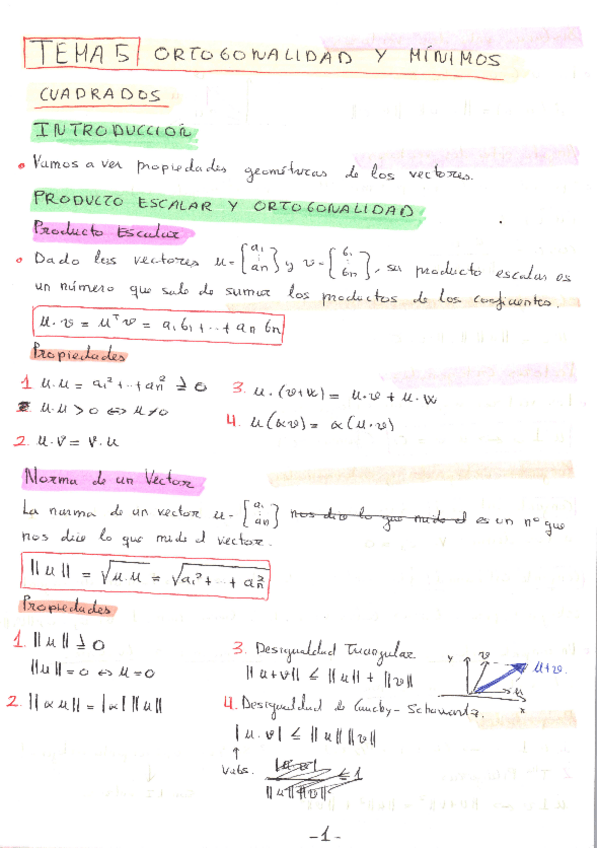 TEMA 5 ORTOGONALIDAD Y MÍNIMOS
CUADRADOS
INTRODUCCIÓN
• Vamos a ver propiedades geométricas de los vectores.
PRODUCTO ESCALAR Y ORTOGONALIDAD
Producto Escalar
• Dado los vectores u = [a₁ ⋮ an] y v = [b₁ ⋮ bn], su producto escalar es
un número que sale de sumar los productos de los coeficientes.
u·v = uᵀv = a₁b₁ + ... + an bn
Propiedades
1 u·u = a₁² + ... + an² ≥ 0
u·u > 0 ⇔ u ≠ 0
2. u·v = v·u
3. u·(v+w) = u·v + u·w
4. u(αv) = α(u·v)
Norma de un Vector
La norma de un vector u = [a₁ ⋮ an] nos dice lo que mide el es un nº que
nos dice lo que mide el vector.
||u|| = √u·u = √a₁² + ... + an²
Propiedades
1. ||u|| ≥ 0
||u|| = 0 ⇔ u = 0
2. ||αu|| = |α| ||u||
3. Desigualdad Triangular
||u+v|| ≤ ||u|| + ||v||
y v u+v u x
4. Desigualdad de Cauchy-Schawartz.
|u·v| ≤ ||u|| ||v||
↑
Vabs.
≤ 1
||u|| ||v||
-1-